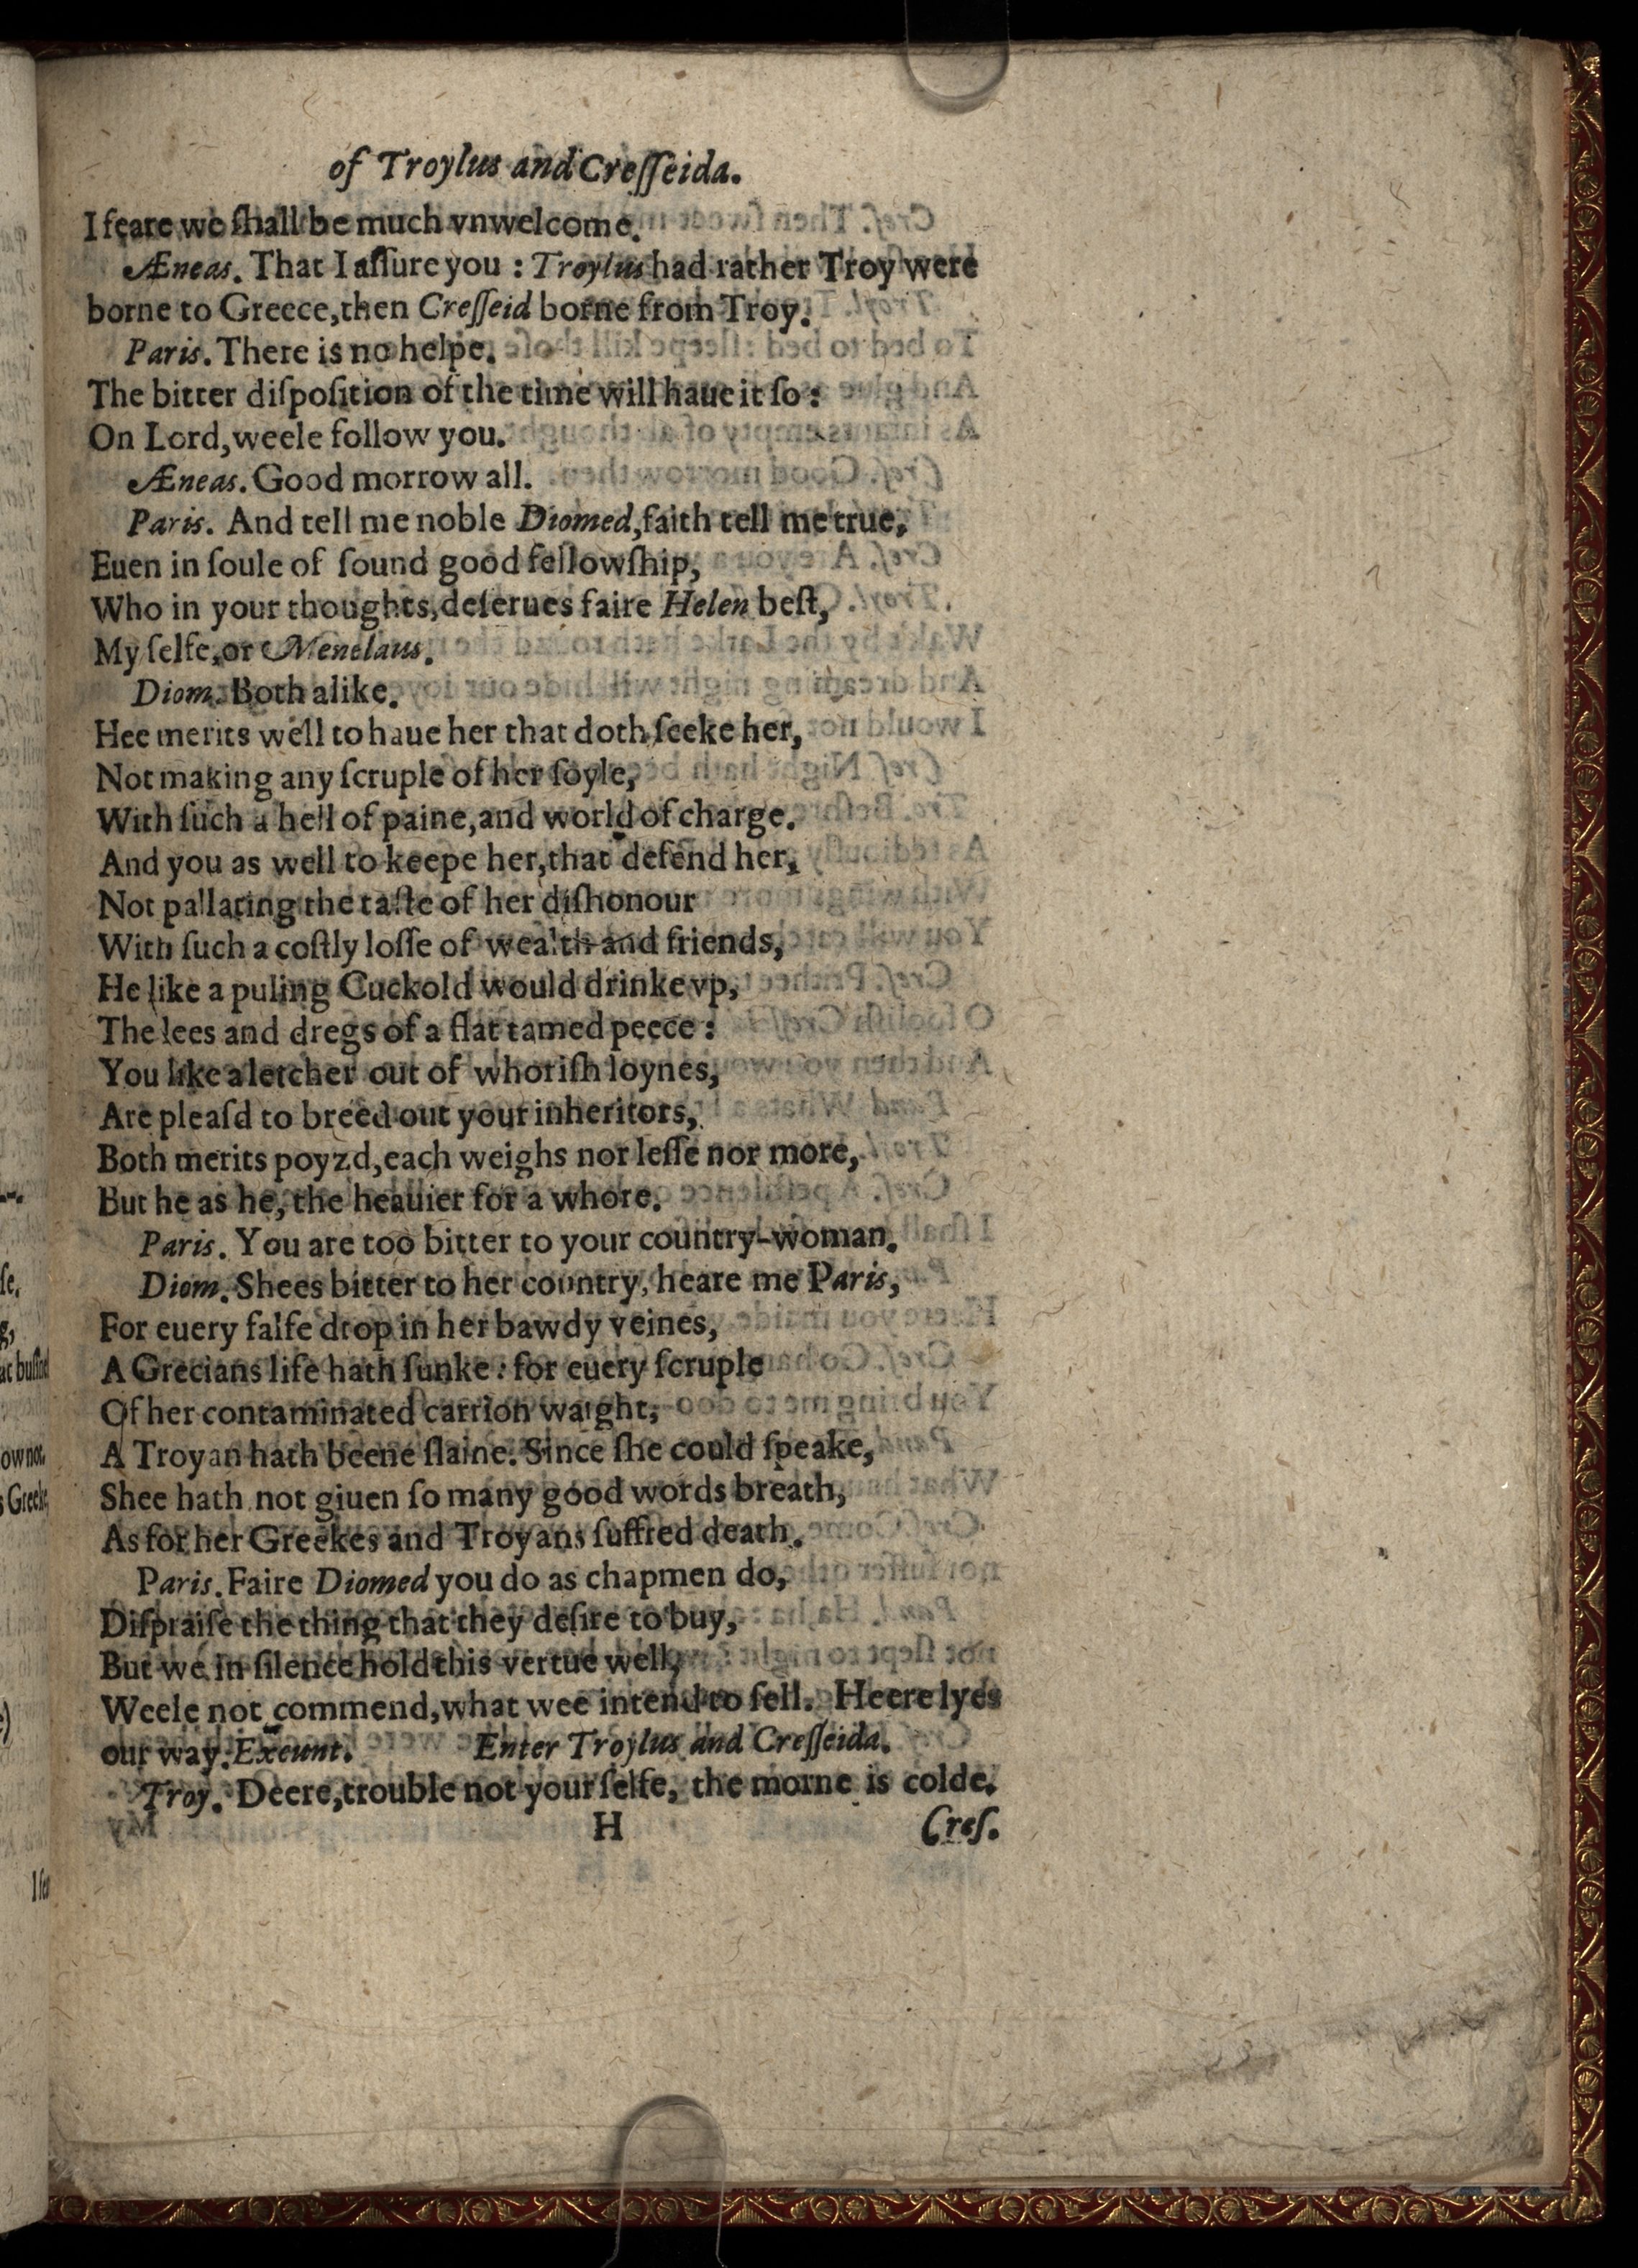 of Troylus and Creſſeida.
I feare we ſhall be much vnwelcome.
Æneas. That I aſſure you : Troylus had rather Troy were
borne to Greece, then Creſſeid borne from Troy.
Paris. There is no helpe.
The bitter diſpoſition of the time will haue it ſo :
On Lord, weele follow you.
Æneas. Good morrow all.
Paris. And tell me noble Diomed, faith tell me true,
Euen in ſoule of ſound good fellowſhip,
Who in your thoughts, deſerues faire Helen beſt,
My ſelfe, or Menelaus.
Diom. Both alike.
Hee merits well to haue her that doth ſeeke her,
Not making any ſcruple of her ſoyle,
With ſuch a hell of paine, and world of charge.
And you as well to keepe her, that defend her,
Not pallating the taſte of her diſhonour
With ſuch a coſtly loſſe of wealth and friends,
He like a puling Cuckold would drinke vp,
The lees and dregs of a flat tamed peece :
You like a letcher out of whoriſh loynes,
Are pleaſd to breed out your inheritors,
Both merits poyzd, each weighs nor leſſe nor more,
But he as he, the heauier for a whore.
Paris. You are too bitter to your country-woman.
Diom. Shees bitter to her country, heare me Paris,
For euery falſe drop in her bawdy veines,
A Grecians life hath ſunke : for euery ſcruple
Of her contaminated carrion waight,
A Troyan hath beene ſlaine. Since ſhe could ſpeake,
Shee hath not giuen ſo many good words breath,
As for her Greekes and Troyans ſuffred death.
Paris. Faire Diomed you do as chapmen do,
Diſpraiſe the thing that they deſire to buy,
But we in ſilence hold this vertue well,
Weele not commend, what wee intend to ſell. Heere lyes
our way. Exeunt. Enter Troylus and Creſſeida.
Troy. Deere, trouble not your ſelfe, the morne is colde.
H Creſ.